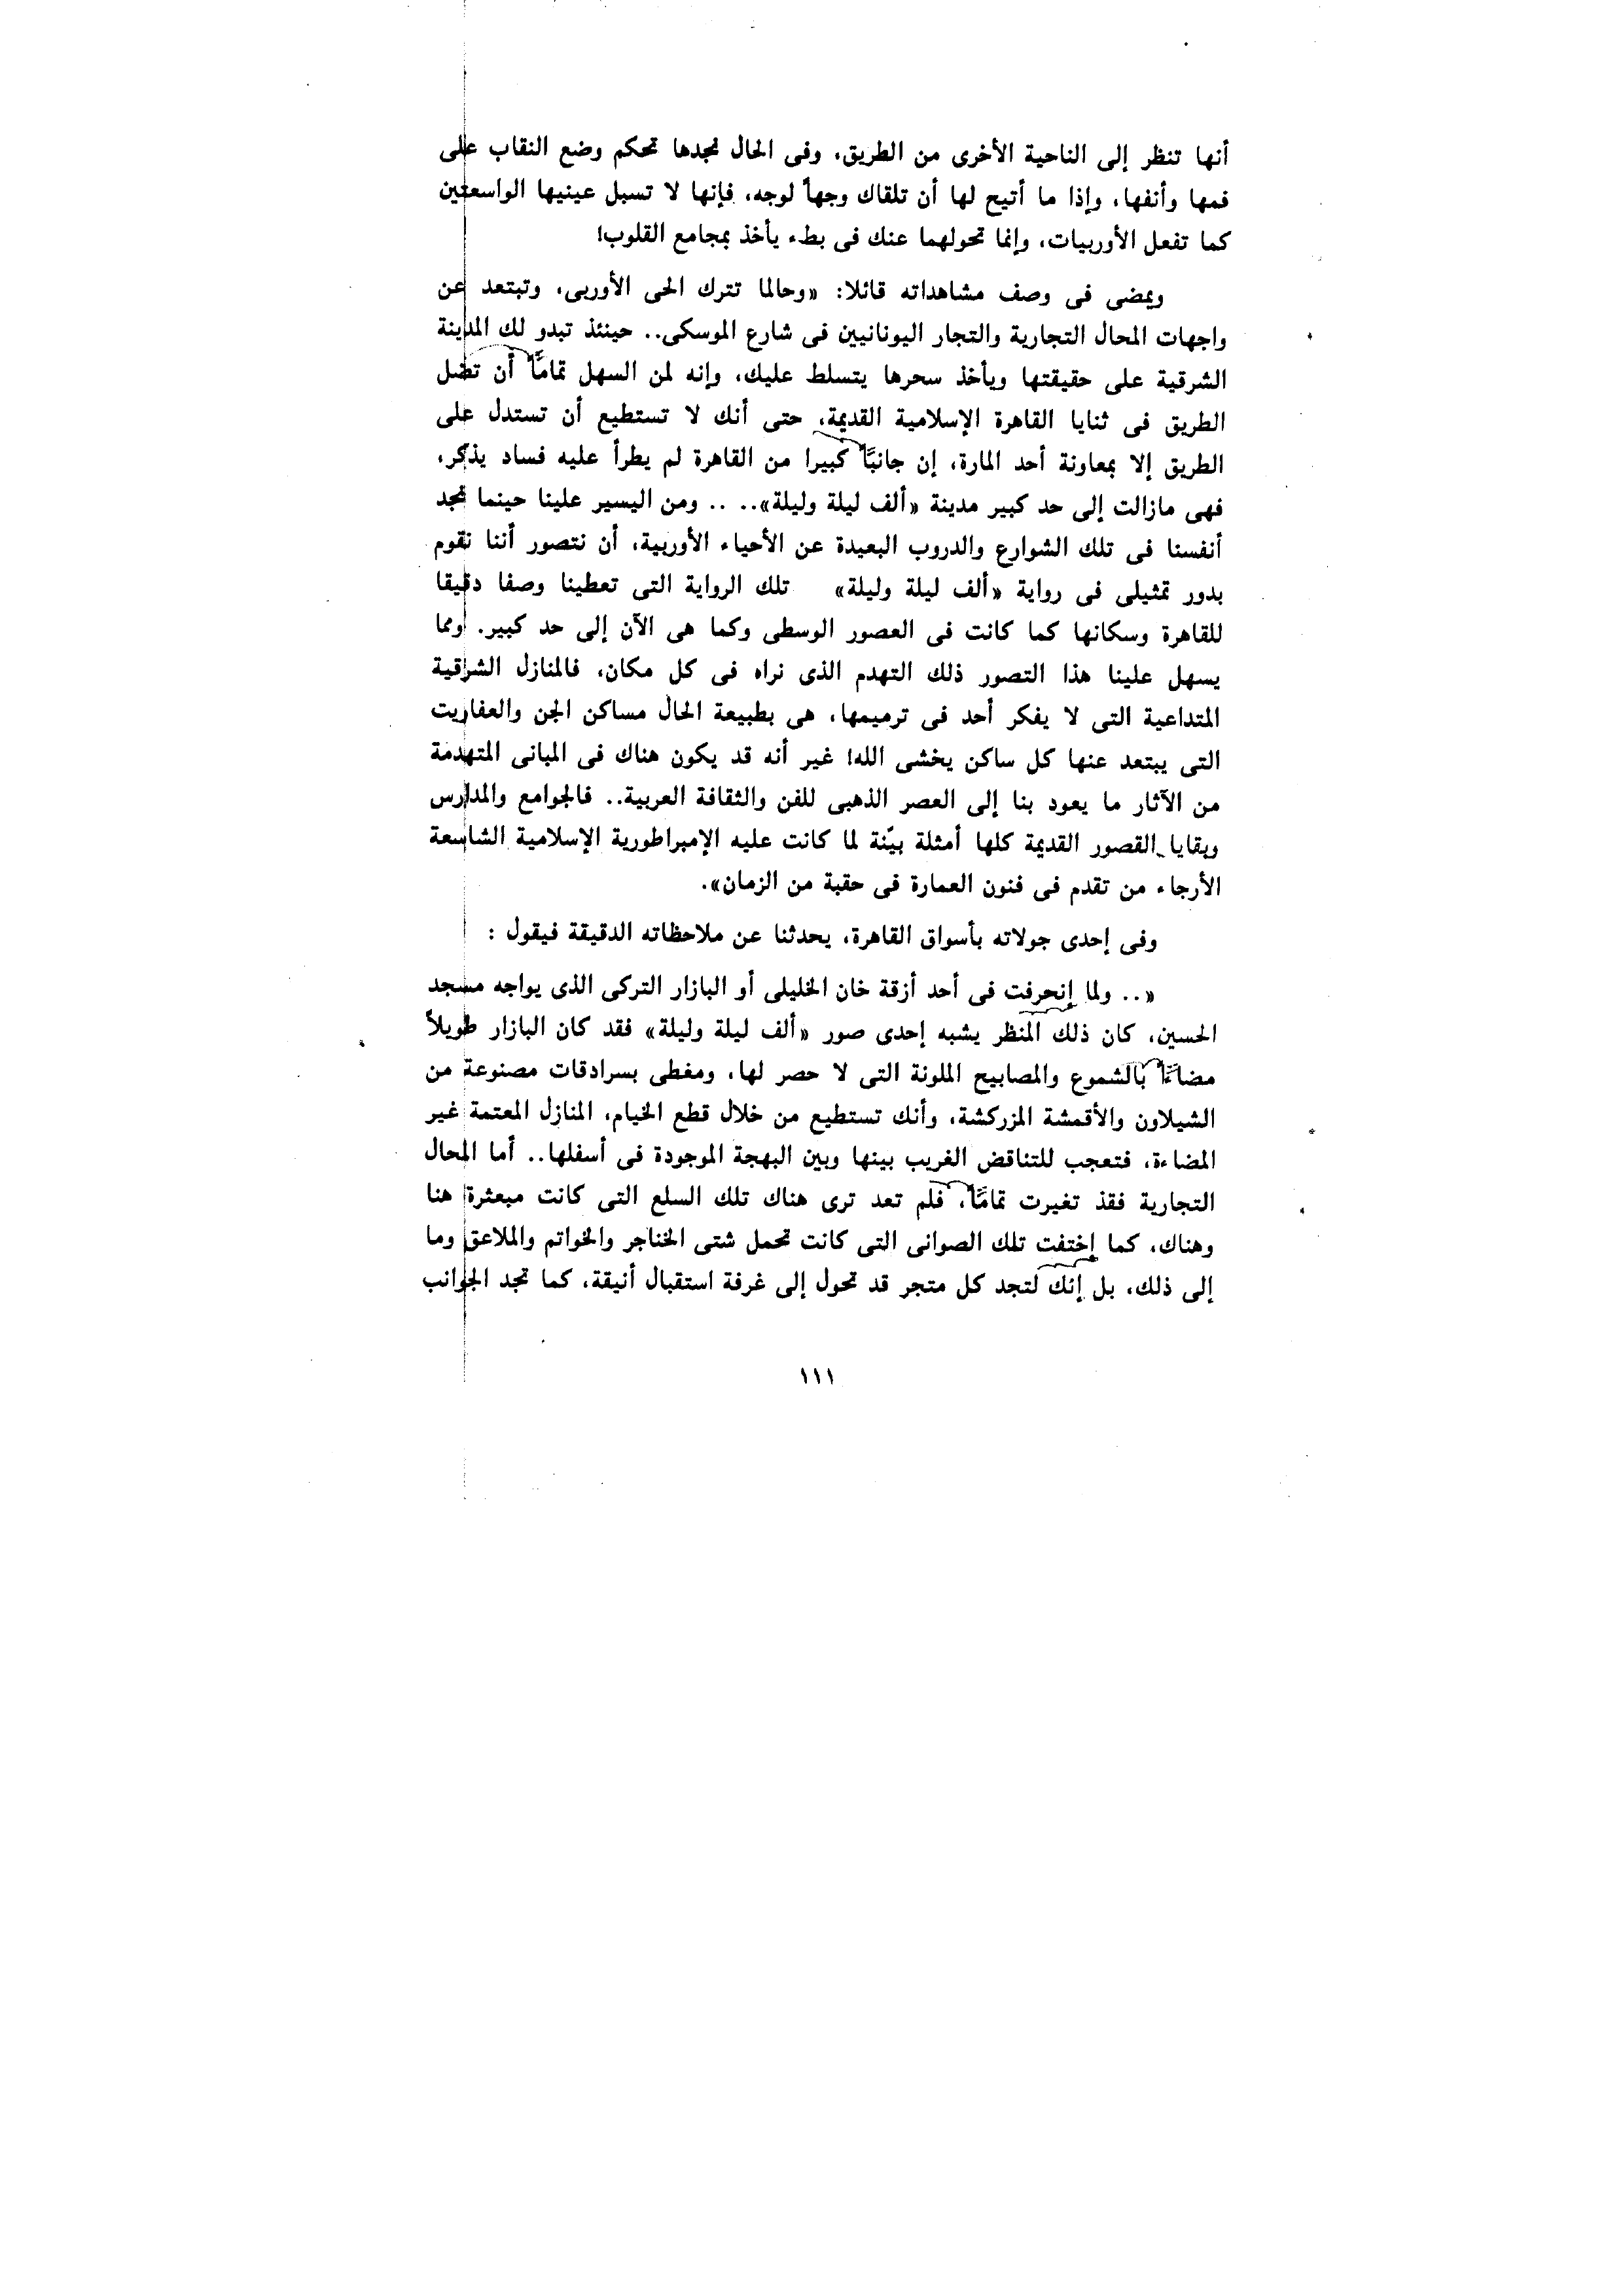 أنها تنظر إلى الناحية الأخرى من الطريق، وفى الحال نجدها تحكم وضع النقاب على
فمها وأنفها، وإذا ما أتيح لها أن تلقاك وجهاً لوجه، فإنها لا تسبل عينيها الواسعتين
كما تفعل الأوربيات، وإنما تحولهما عنك فى بطء يأخذ بمجامع القلوب!
ويمضى فى وصف مشاهداته قائلا: «وحالما تترك الحى الأوربى، وتبتعد عن
واجهات المحال التجارية والتجار اليونانيين فى شارع الموسكى.. حينئذ تبدو لك المدينة
الشرقية على حقيقتها ويأخذ سحرها يتسلط عليك، وإنه لمن السهل تمامًا أن تضل
الطريق فى ثنايا القاهرة الإسلامية القديمة، حتى أنك لا تستطيع أن تستدل على
الطريق إلا بمعاونة أحد المارة، إن جانبًا كبيرا من القاهرة لم يطرأ عليه فساد يذكر،
فهى مازالت إلى حد كبير مدينة «ألف ليلة وليلة».. .. ومن اليسير علينا حينما نجد
أنفسنا فى تلك الشوارع والدروب البعيدة عن الأحياء الأوربية، أن نتصور أننا نقوم
بدور تمثيلى فى رواية «ألف ليلة وليلة» تلك الرواية التى تعطينا وصفا دقيقا
للقاهرة وسكانها كما كانت فى العصور الوسطى وكما هى الآن إلى حد كبير. ومما
يسهل علينا هذا التصور ذلك التهدم الذى نراه فى كل مكان، فالمنازل الشرقية
المتداعية التى لا يفكر أحد فى ترميمها، هى بطبيعة الحال مساكن الجن والعفاريت
التى يبتعد عنها كل ساكن يخشى الله! غير أنه قد يكون هناك فى المبانى المتهدمة
من الآثار ما يعود بنا إلى العصر الذهبى للفن والثقافة العربية.. فالجوامع والمدارس
وبقايا القصور القديمة كلها أمثلة بيّنة لما كانت عليه الإمبراطورية الإسلامية الشاسعة
الأرجاء من تقدم فى فنون العمارة فى حقبة من الزمان».
وفى إحدى جولاته بأسواق القاهرة، يحدثنا عن ملاحظاته الدقيقة فيقول :
«.. ولما إنحرفت فى أحد أزقة خان الخليلى أو البازار التركى الذى يواجه مسجد
الحسين، كان ذلك المنظر يشبه إحدى صور «ألف ليلة وليلة» فقد كان البازار طويلاً
مضاءًا بالشموع والمصابيح الملونة التى لا حصر لها، ومغطى بسرادقات مصنوعة من
الشيلاون والأقمشة المزركشة، وأنك تستطيع من خلال قطع الخيام، المنازل المعتمة غير
المضاءة، فتعجب للتناقض الغريب بينها وبين البهجة الموجودة فى أسفلها.. أما المحال
التجارية فقذ تغيرت تمامًا، فلم تعد ترى هناك تلك السلع التى كانت مبعثرة هنا
وهناك، كما إختفت تلك الصوانى التى كانت تحمل شتى الخناجر والخواتم والملاعق وما
إلى ذلك، بل إنك لتجد كل متجر قد تحول إلى غرفة استقبال أنيقة، كما تجد الجوانب
١١١